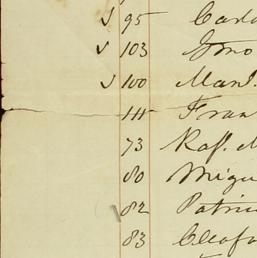 ✓ 95 Carl
✓ 103 Gmo
✓ 100 Manl.
111 Fran
73 Raf. M
80 Migu
82 Patric
83 Cleofa